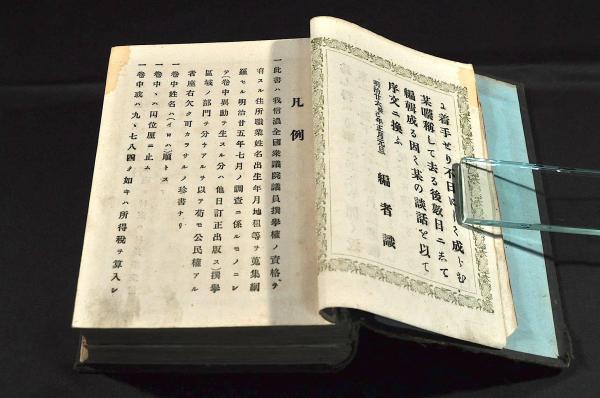 着手せり不日に
某喏稱して去る後数日にして
編輯成る因て某の談話を以て
序文に換ふ
明治廿六年正月元旦
編者識
凡例
一此書ハ我信濃全國衆議院議員撰擧權ノ資格ヲ
有スル住所職業姓名出生年月地租等ヲ蒐集網
羅セル明治廿五年七月ノ調査ニ係ルモノニシ
テ(巻中異動ヲ生スル分ハ他日訂正出版ス)撰擧
區域ノ部門ヲ分チアルヲ以テ苟モ公民權アル
者座右欠ク可カラサルノ珍書ナリ
一巻中姓名ハ(イロハ)順トス
一巻中、ハ円位厘ニ止ム
一巻中或ハ九、七八四ノ如キハ所得税ヲ算入シ